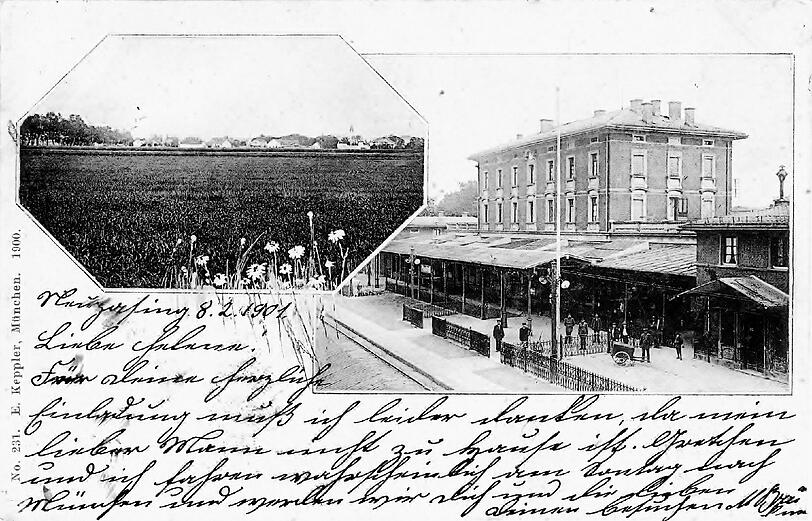 No. 231. E. Keppler, München. 1900.
Neupasing 8.2.1901
Liebe Helene
Für Deine herzliche
Einladung muß ich leider danken, da mein
lieber Mann nicht zu Hause ist. Gretchen
und ich fahren wahrscheinlich am Sonntag nach
München und werden wir Dich und die lieben
Deinen besuchen